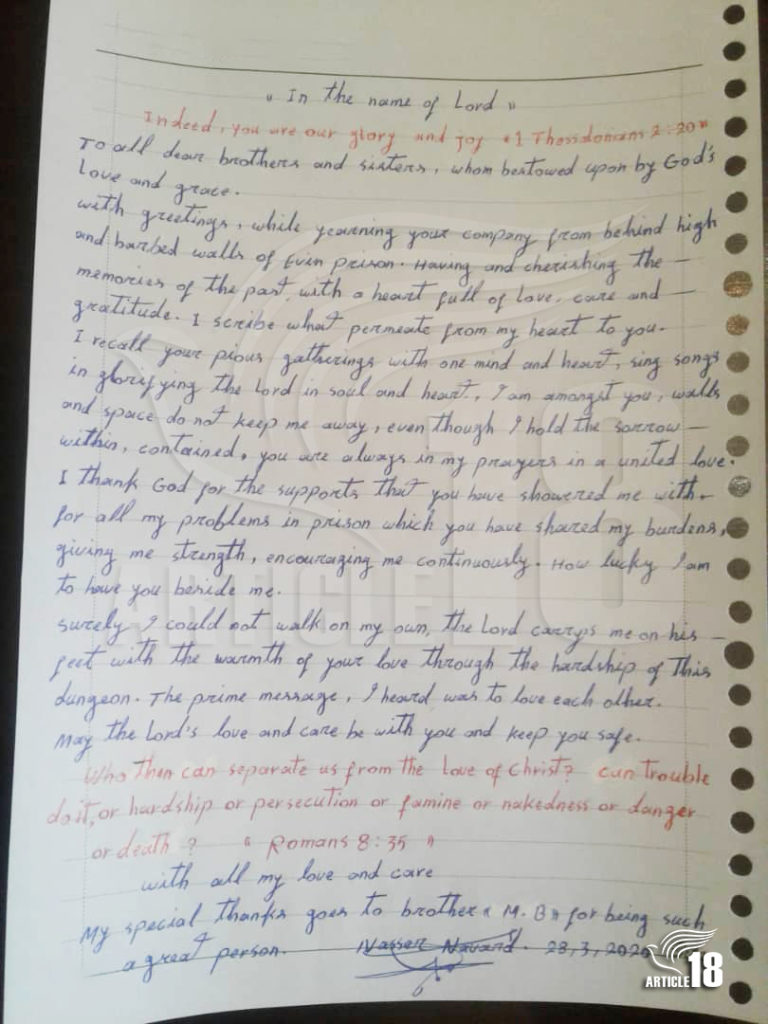 « In the name of Lord »
Indeed, you are our glory and joy «1 Thessdonians 2:20»
To all dear brothers and sisters, whom bestowed upon by God's
Love and grace.
with greetings, while yearning your company from behind high
and barbed walls of Evin prison. Having and cherishing the —
memories of the past, with a heart full of love, care and —
gratitude. I scribe what permeate from my heart to you.
I recall your pious gatherings with one mind and heart, sing songs
in glorifying the Lord in soul and heart, I am amongst you, walls
and space do not keep me away, even though I hold the sorrow —
within, contained, you are always in my prayers in a united love.
I thank God for the supports that you have showered me with.
for all my problems in prison which you have shared my burdens,
giving me strength, encouraging me continuously. How lucky I am
to have you beside me.
Surely I could not walk on my own, the Lord carrys me on his —
feet with the warmth of your love through the hardship of This
dungeon. The prime message, I heard was to love each other.
May the Lord's love and care be with you and keep you safe.
Who then can separate us from the Love of Christ? can trouble
do it, or hardship or persecution or famine or nakedness or danger
or death? « Romans 8:35 »
with all my love and care
My special thanks goes to brother « M. B » for being such
a great person. Nasser Navard. 28,3,2020
ARTICLE 18
ARTICLE18